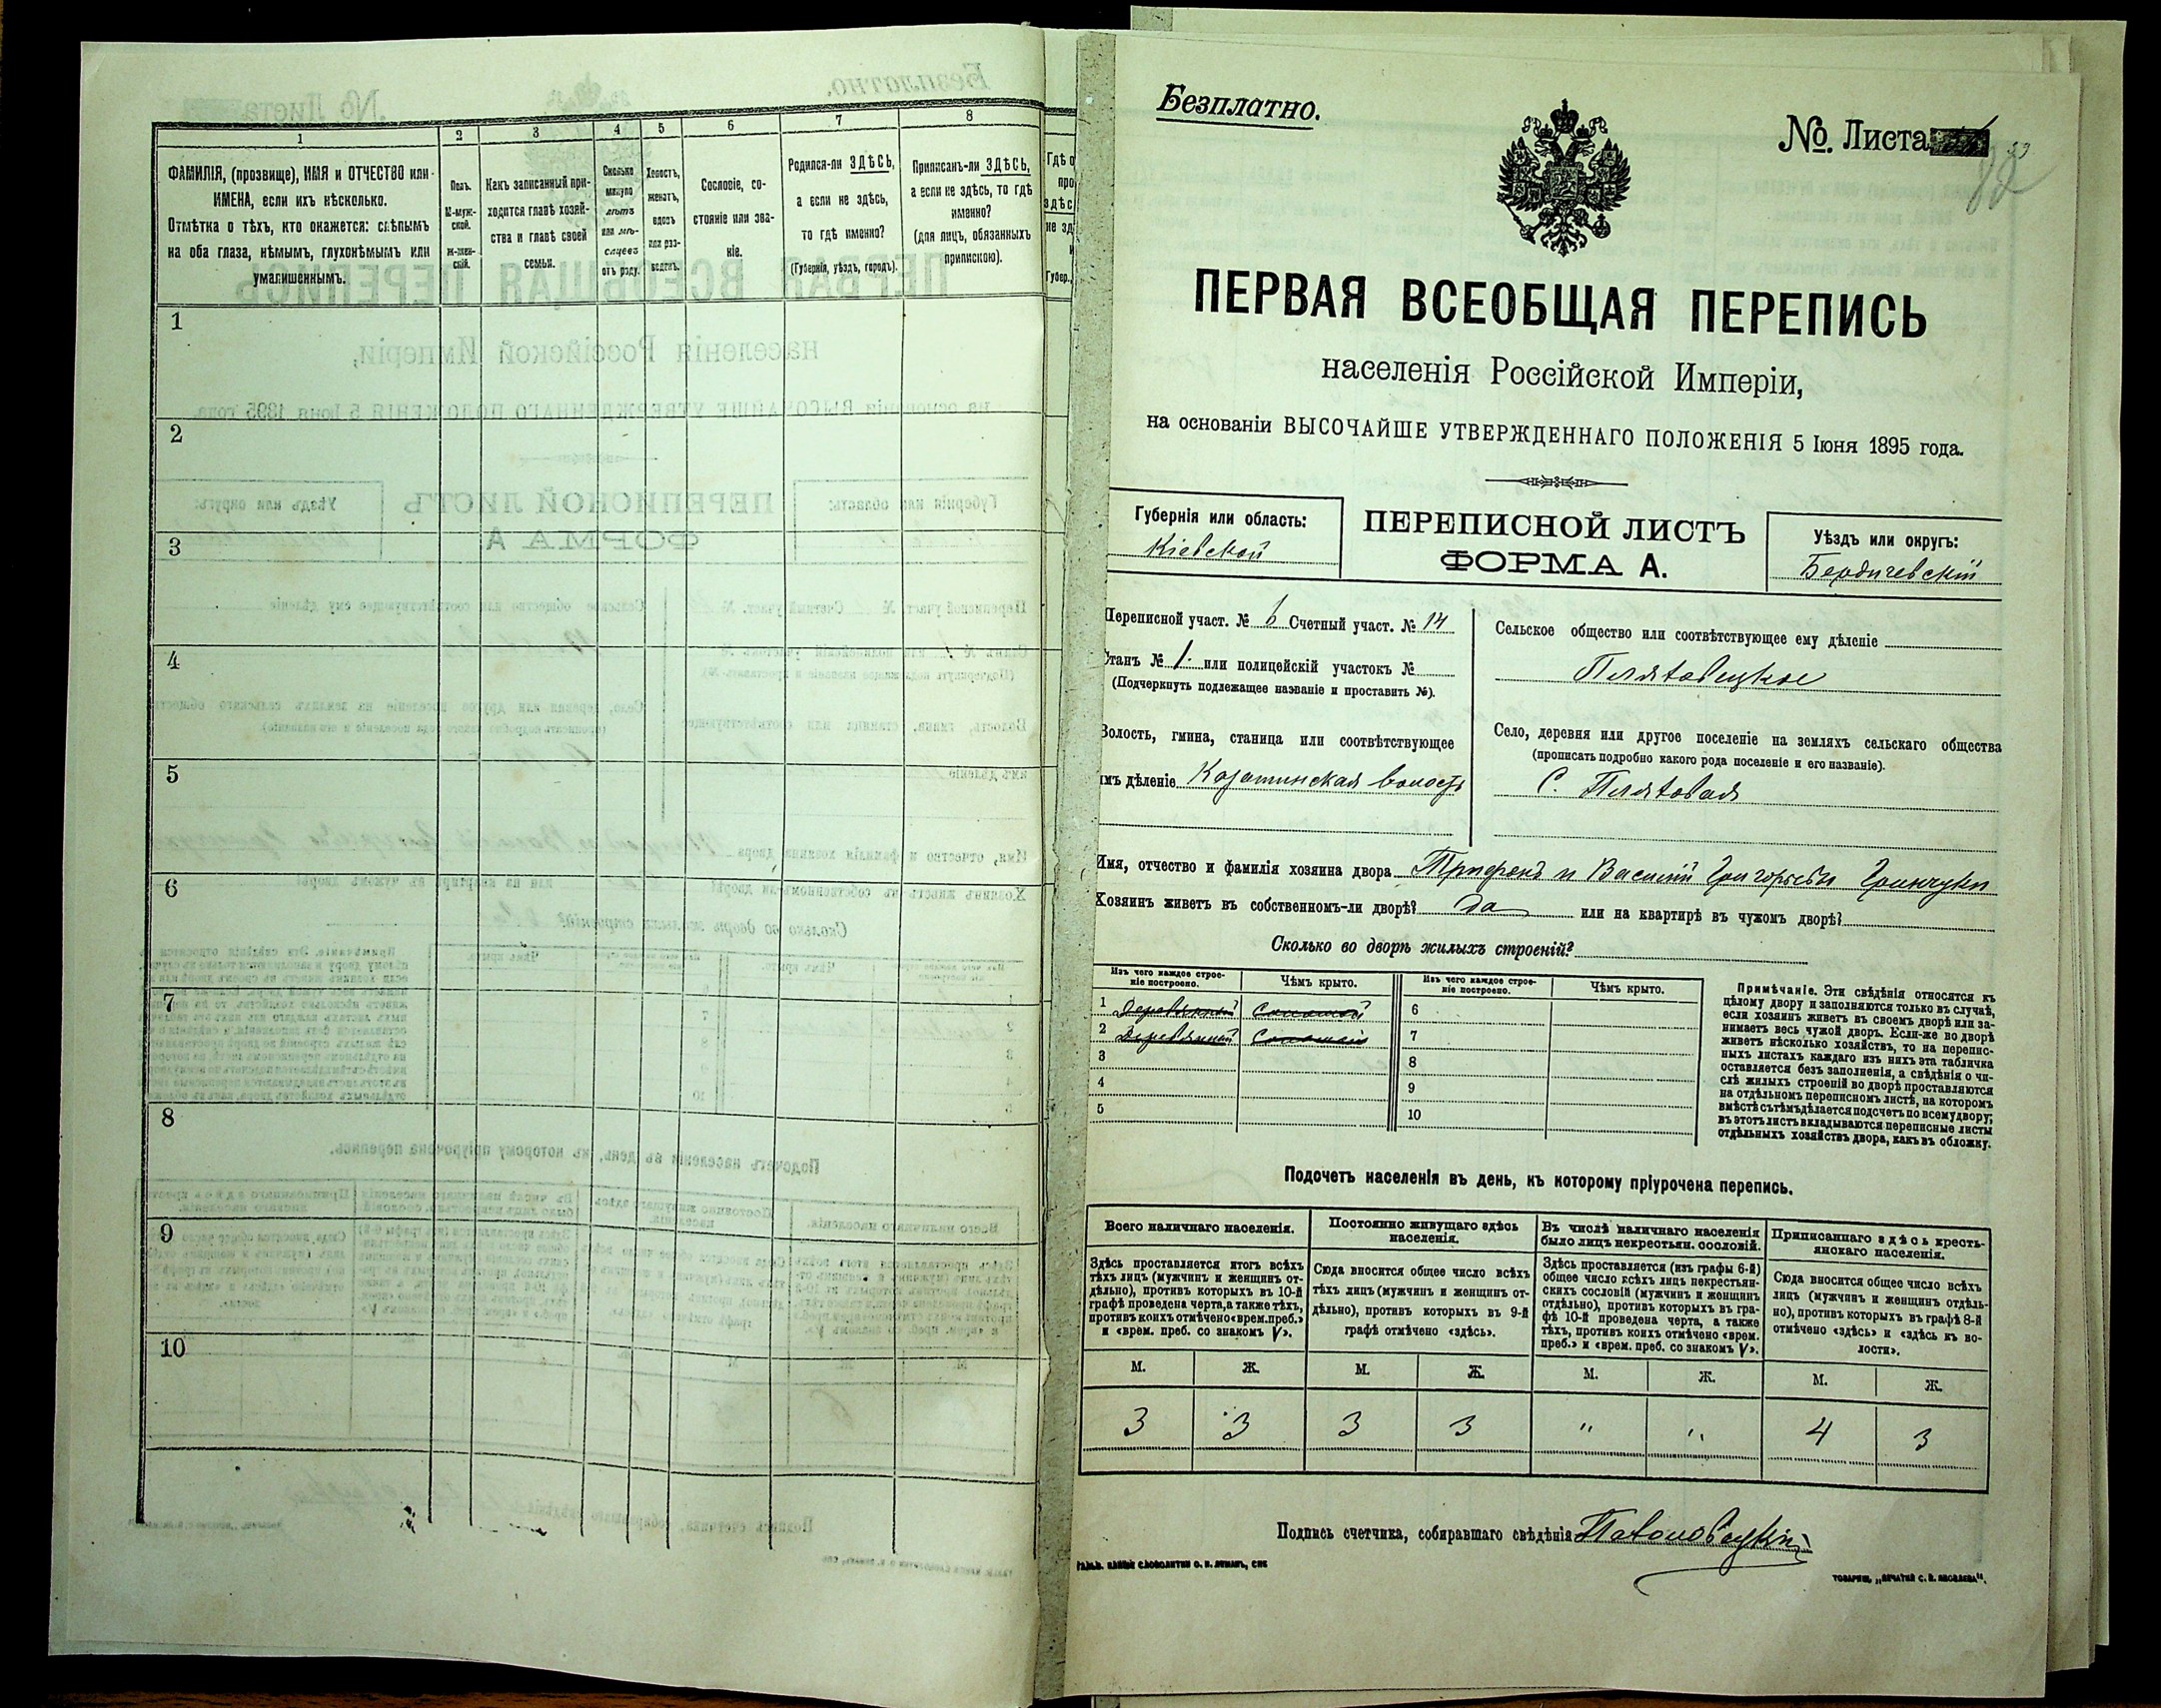 1
2
3
4
5
6
7
8
ФАМИЛІЯ, (прозвище), ИМЯ и ОТЧЕСТВО или
ИМЕНА, если ихъ нѣсколько.
Отмѣтка о тѣхъ, кто окажется: слѣпымъ
на оба глаза, нѣмымъ, глухонѣмымъ или
умалишеннымъ.
Полъ.
М-муж-
ской.
Ж-жен-
скій.
Какъ записанный при-
ходится главѣ хозяй-
ства и главѣ своей
семьи.
Сколько
минуло
лѣтъ
или мѣ-
сяцевъ
отъ роду.
Холостъ,
женатъ,
вдовъ
или раз-
веденъ.
Сословіе, со-
стояніе или зва-
ніе.
Родился-ли ЗДѢСЬ,
а если не здѣсь,
то гдѣ именно?
(Губернія, уѣздъ, городъ).
Приписанъ-ли ЗДѢСЬ,
а если не здѣсь, то гдѣ
именно?
(для лицъ, обязанныхъ
припискою).
1
2
3
4
5
6
7
8
9
10
Безплатно.
№. Листа
ПЕРВАЯ ВСЕОБЩАЯ ПЕРЕПИСЬ
населенія Россійской Имперіи,
на основаніи ВЫСОЧАЙШЕ УТВЕРЖДЕННАГО ПОЛОЖЕНІЯ 5 Іюня 1895 года.
Губернія или область:
Кіевской
ПЕРЕПИСНОЙ ЛИСТЪ
ФОРМА А.
Уѣздъ или округъ:
Бердичевскій
Переписной участ. № 6 Счетный участ. № 14
Станъ № 1. или полицейскій участокъ №
(Подчеркнуть подлежащее названіе и проставить №).
Волость, гмина, станица или соотвѣтствующее
имъ дѣленіе Козатинская волость
Сельское общество или соотвѣтствующее ему дѣленіе
Пляховецкое
Село, деревня или другое поселеніе на земляхъ сельскаго общества
(прописать подробно какого рода поселеніе и его названіе).
С. Пляховая
Имя, отчество и фамилія хозяина двора Трифонъ и Василій Григорьевы Гринчуки
Хозяинъ живетъ въ собственномъ-ли дворѣ? да или на квартирѣ въ чужомъ дворѣ?
Сколько во дворѣ жилыхъ строеній?
Изъ чего каждое строе-
ніе построено.
Чѣмъ крыто.
Изъ чего каждое строе-
ніе построено.
Чѣмъ крыто.
1 Деревянный Соломой 6
2 Деревянный Соломой 7
3 8
4 9
5 10
Примѣчаніе. Эти свѣдѣнія относятся къ
цѣлому двору и заполняются только въ случаѣ,
если хозяинъ живетъ въ своемъ дворѣ или за-
нимаетъ весь чужой дворъ. Если-же во дворѣ
живетъ нѣсколько хозяйствъ, то на перепис-
ныхъ листахъ каждаго изъ нихъ эта табличка
оставляется безъ заполненія, а свѣдѣнія о чи-
слѣ жилыхъ строеній во дворѣ проставляются
на отдѣльномъ переписномъ листѣ, на которомъ
вмѣстѣ съ тѣмъ дѣлается подсчетъ по всему двору;
въ этотъ листъ вкладываются переписные листы
отдѣльныхъ хозяйствъ двора, какъ въ обложку.
Подсчетъ населенія въ день, къ которому пріурочена перепись.
Всего наличнаго населенія.
Постоянно живущаго здѣсь
населенія.
Въ числѣ наличнаго населенія
было лицъ некрестьян. сословій.
Приписаннаго здѣсь кресть-
янскаго населенія.
Здѣсь проставляется итогъ всѣхъ
тѣхъ лицъ (мужчинъ и женщинъ от-
дѣльно), противъ которыхъ въ 10-й
графѣ проведена черта, а также тѣхъ,
противъ коихъ отмѣчено «врем. преб.»
и «врем. преб. со знакомъ V».
Сюда вносится общее число всѣхъ
тѣхъ лицъ (мужчинъ и женщинъ от-
дѣльно), противъ которыхъ въ 9-й
графѣ отмѣчено «здѣсь».
Здѣсь проставляется (изъ графы 6-й)
общее число всѣхъ лицъ некрестьян-
скихъ сословій (мужчинъ и женщинъ
отдѣльно), противъ которыхъ въ гра-
фѣ 10-й проведена черта, а также
тѣхъ, противъ коихъ отмѣчено «врем.
преб.» и «врем. преб. со знакомъ V».
Сюда вносится общее число всѣхъ
лицъ (мужчинъ и женщинъ отдѣль-
но), противъ которыхъ въ графѣ 8-й
отмѣчено «здѣсь» и «здѣсь къ во-
лости».
М. Ж. М. Ж. М. Ж. М. Ж.
3 3 3 3 " " 4 3
Подпись счетчика, собиравшаго свѣдѣнія
ТОВАРИЩ. „ПЕЧАТНЯ С. П. ЯКОВЛЕВА".